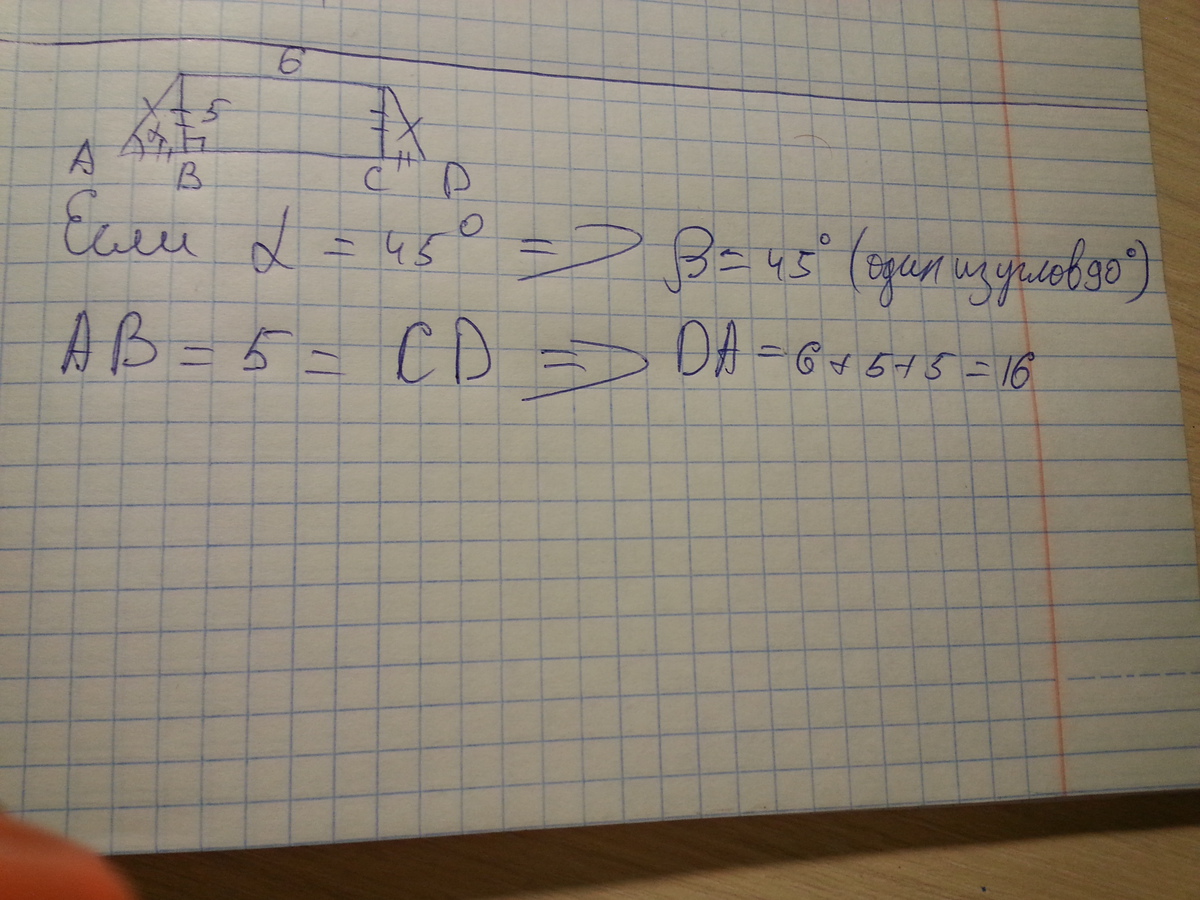 6
α 5
A B C D
Если α = 45° => β = 45° (один из углов 90°)
AB = 5 = CD => DA = 6 + 5 + 5 = 16